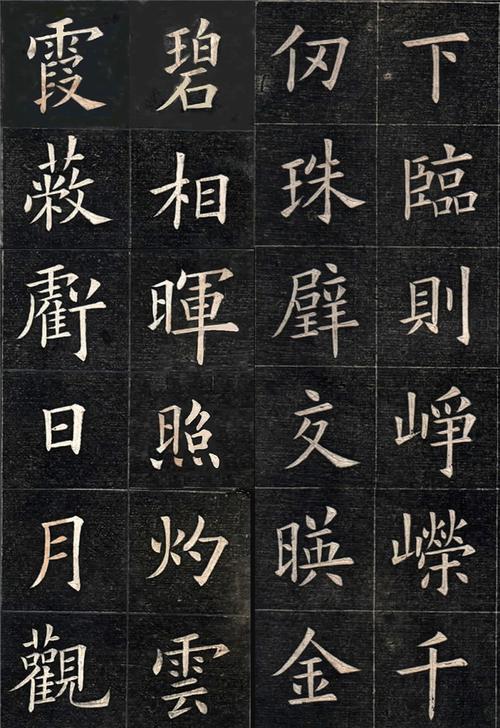 下臨則崢嶸千
仞珠壁交暎金
碧相暉照灼雲
霞蔽虧日月觀